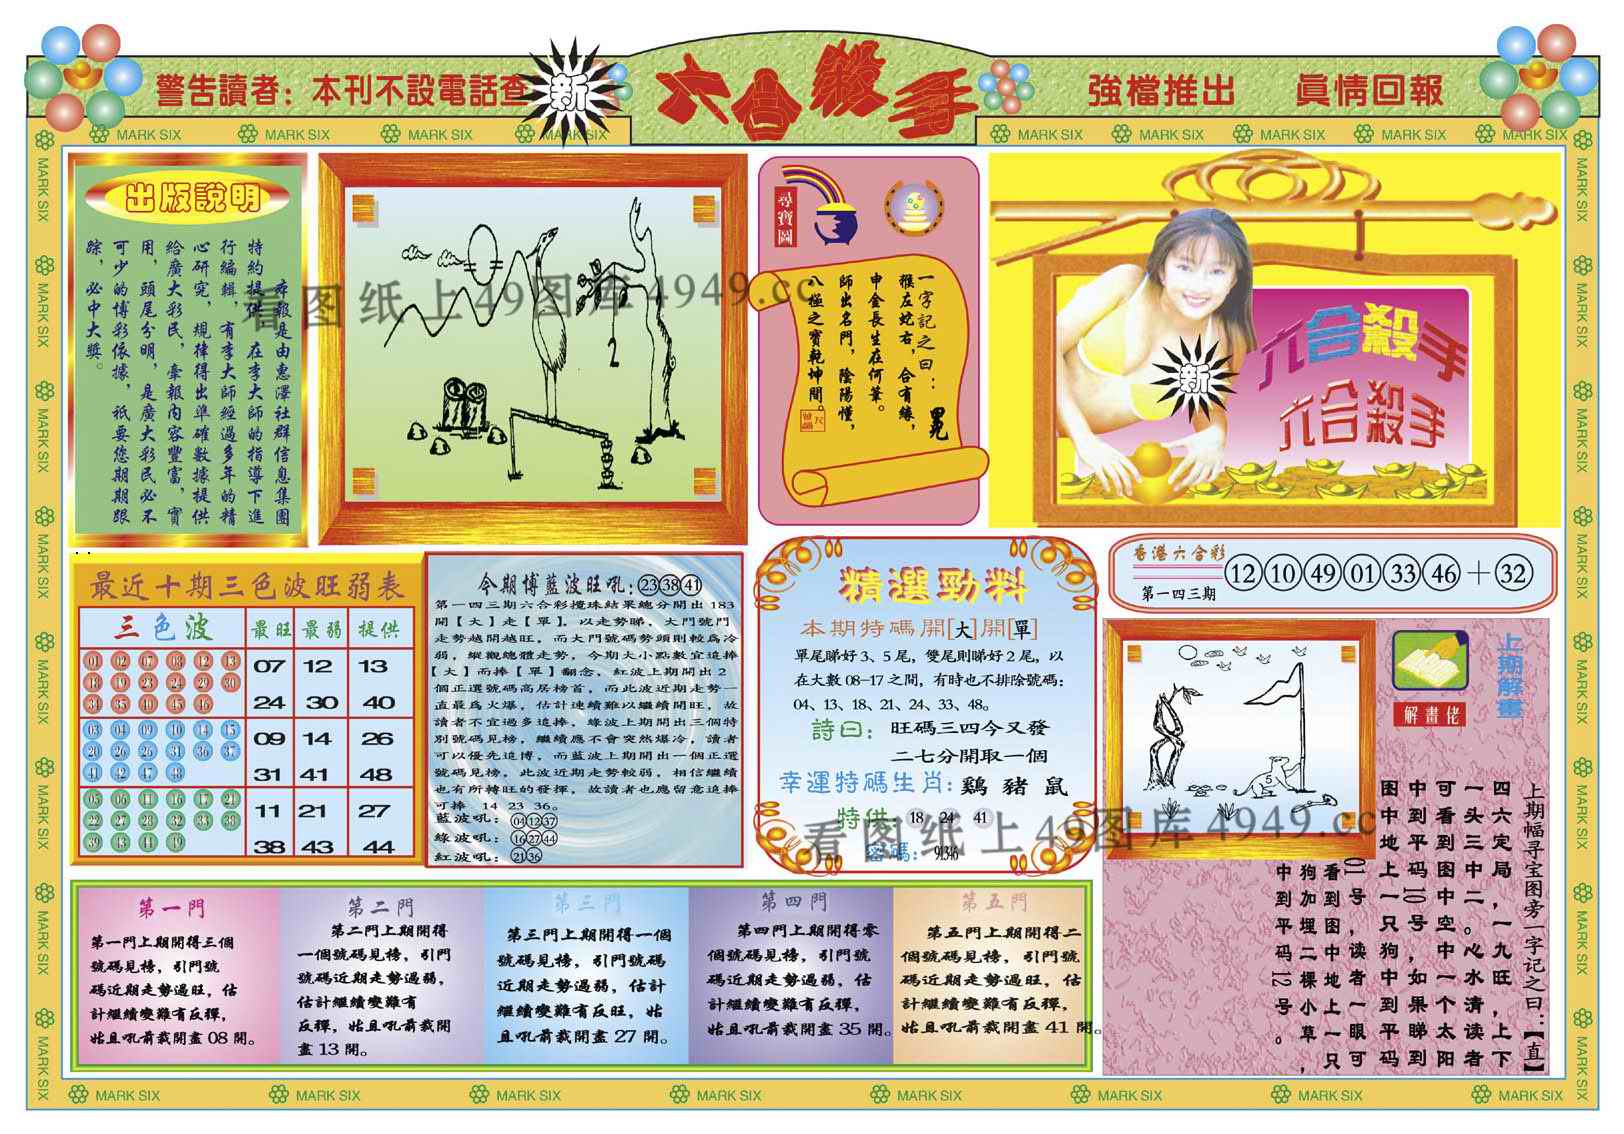 警告讀者：本刊不設電話查
新
六合殺手
強檔推出 眞情回報
MARK SIX
出版說明
本報是由惠澤社群信息集團
特約提供，在李大師的指導下進
行編輯，有李大師經過多年的精
心研究，規律得出準確數據提供
給廣大彩民，本報內容豐富，實
用，頭尾分明，是廣大彩民必不
可少的博彩依據，祇要您期期跟
踪，必中大獎。
2
尋寶圖
一字記之曰：
猴左蛇右，合有緣，
申金長生在何筆。
師出名門，陰陽懂，
八極之寶乾坤間。
新
六合殺手
六合殺手
看图纸上49图库4949.cc
最近十期三色波旺弱表
三色波 最旺 最弱 提供
01 02 07 08 12 13
18 19 23 24 29 30
34 35 40 45 46
07 12 13
24 30 40
03 04 09 10 14 15
20 26 25 31 36 37
41 42 47 48
09 14 26
31 41 48
05 06 11 16 17 21
22 27 28 32 33 38
39 43 44 49
11 21 27
38 43 44
今期博藍波旺吼：23 38 41
第一四三期六合彩攪珠結果總分開出 183
開【大】走【單】，以走勢睇，大門號門
走勢越開越旺，而大門號碼勢頭則較為冷
弱，縱觀總體走勢，今期大小點數宜追捧
【大】而捧【單】翻念，紅波上期開出 2
個正選號碼高居榜首，而此波近期走勢一
直最為火爆，估計連續難以繼續開旺，故
讀者不宜過多追捧，綠波上期開出三個特
別號碼見榜，繼續應不會突然爆冷，讀者
可以優先追博，而藍波上期開出一個正選
號碼見榜，此波近期走勢較弱，相信繼續
也有所轉旺的發揮，故讀者也應留意追捧
可捧 14 23 36。
藍波吼：04 12 37
綠波吼：16 27 44
紅波吼：21 36
精選勁料
本期特碼開[大]開[單]
單尾睇好 3、5 尾，雙尾則睇好 2 尾，以
在大數 08-17 之間，有時也不排除號碼：
04、13、18、21、24、33、48。
詩曰：旺碼三四今又發
二七分開取一個
幸運特碼生肖：鷄 豬 鼠
特供：18 24 41
密碼：91346
香港六合彩
第一四三期
12 10 49 01 33 46 + 32
5
上期解畫
解畫佬
上期幅寻宝图旁一字记之曰：【直】
四六定局，一九旺，上下
一头三中二。心水清，读者
可看到图中空。中一个太阳
中到平码10号，如果睇到
图中地上一只狗，中到平码
01号。读者一眼可
看到图中地上一只
狗加埋二棵小草，
中到平码12号。
看图纸上49图库4949.cc
第一門
第一門上期開得三個
號碼見榜，引門號
碼近期走勢過旺，估
計繼續變難有反彈，
姑且吼前裁開盡 08 開。
第二門
第二門上期開得
一個號碼見榜，引門
號碼近期走勢過弱，
估計繼續變難有
反彈，姑且吼前裁開
盡 13 開。
第三門
第三門上期開得一個
號碼見榜，引門號碼
近期走勢過弱，估計
繼續變難有反旺，姑
且吼前裁開盡 27 開。
第四門
第四門上期開得零
個號碼見榜，引門號
碼近期走勢過弱，估
計繼續變難有反彈，
姑且吼前裁開盡 35 開。
第五門
第五門上期開得二
個號碼見榜，引門號
碼近期走勢過旺，估
計繼續變難有反彈，
姑且吼前裁開盡 41 開。
MARK SIX MARK SIX MARK SIX MARK SIX MARK SIX MARK SIX MARK SIX MARK SIX